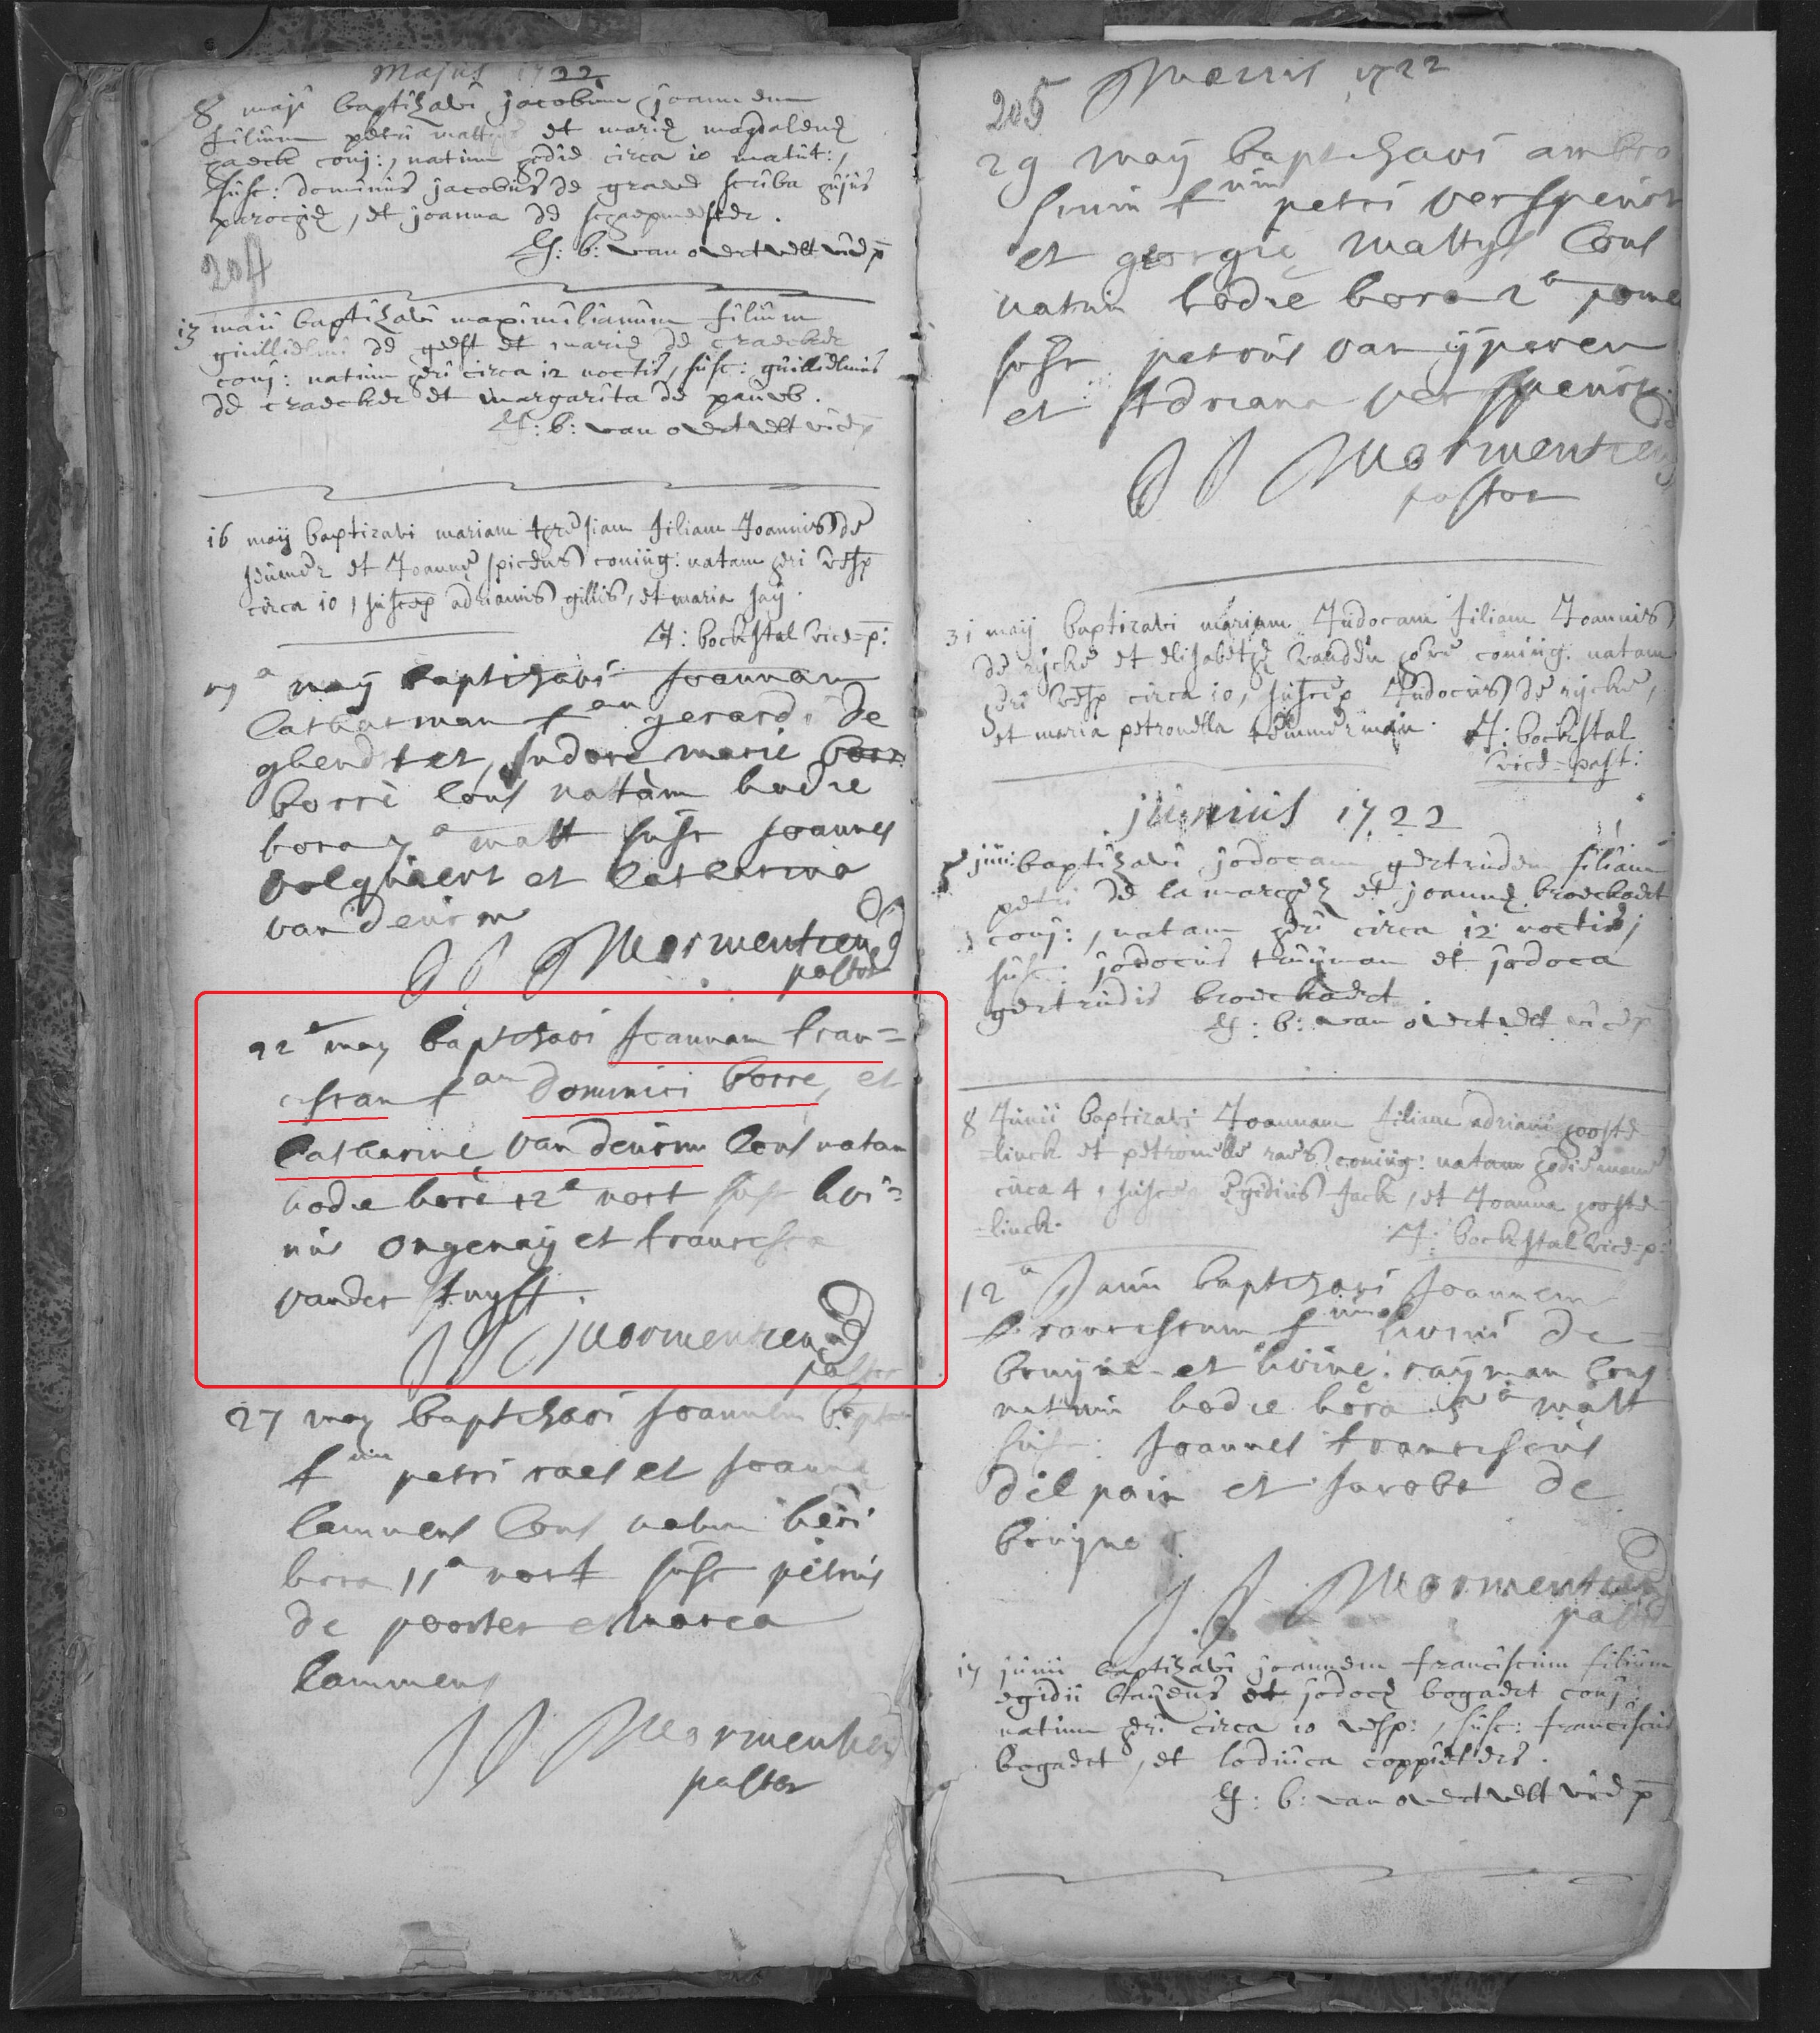 Majus 1722
8 maji baptizavi jacobum joannem
filium petri matthys et mariæ magdalenæ
conj:, natum hodie circa 10 matut:,
susc: dominus jacobus de grave scriba hujus
parochiæ, et joanna de schepmeester.
b: van overtvelt vice p
204
13 maii baptizavi maximilianum filium
guillielmi de geest et mariæ de craecker
conj: natum heri circa 12 noctis, susc: guillielmus
de craecker et margarita de pauw.
b: van overtvelt vice p
16 maij baptizavi mariam theresiam filiam Joannis de
et Joannæ spiceus coniug: natam heri vesp
circa 10, suscep adrianus gillis, et maria say.
J: bockstal vice=p:
maij baptizavi Joannam
Catharinam f am gerardi de
ghendt et Judoce marie
borré Conj natam hodie
hora 7 a matt susc Joannes
volghaert et Catharina
van deurm
JJ Moermentreud
pastor
22 e may baptizavi Joannam Fran=
ciscam f am Dominici borre, et
Catharinę van deurm Conj natam
hodie hore 12 e noct susc livi=
nus ongenaij et Francisca
vander stuyft.
JJ Moermentreud
pastor
27 may baptizavi Joannem bapt
f um petri raes et Joanna
lammens Conj natum heri
hora 11 a noct susc petrus
de poorter et
lammens
JJ Moermentreud
pastor
205 1722
29 maij baptizavi ambro
sium f um petri verspeurt
et georgię mattys Conj
natum hodie hora 2 a pome
susc petrus van ijperen
et Adriana verspeurt
JJ Moermentreud
pastor
31 maij baptizavi mariam Judocam filiam Joannis
de rijcke et elisabethæ vanden hove coniug: natam
heri vesp circa 10, suscep Judocus de rijcke,
et maria petronella temmerman. J: bockstal
vice=past:
junius 1722
junii baptizavi jodocam gertrudem filiam
petri de la marche et joannæ broeckaert
conj:, natam heri circa 12 noctis,
susc: jodocus tuijman et jodoca
gertrudis broeckaert.
b: van overtvelt vice p
8 Junii baptizavi Joannam filiam adriani hooste
=linck et petronille raes coniug: natam hodie mane
circa 4, suscep Egidius Jack, et Joanna hooste
=linck.
J: bockstal vice=p:
12 a Junii baptizavi Joannem
Franciscum f um livini de
bruyne et livine rayman Conj
natum hodie hora 5 a matt
susc: Joannes Franciscus
delpair et Jacoba de
bruijne
JJ Moermentreud
pastor
17 junii baptizavi joannem franciscum filium
egidii et jodocæ bogaert conj:
natum heri circa 10 vesp:, susc: franciscus
bogaert, et lodvica coppieters.
b: van overtvelt vice p